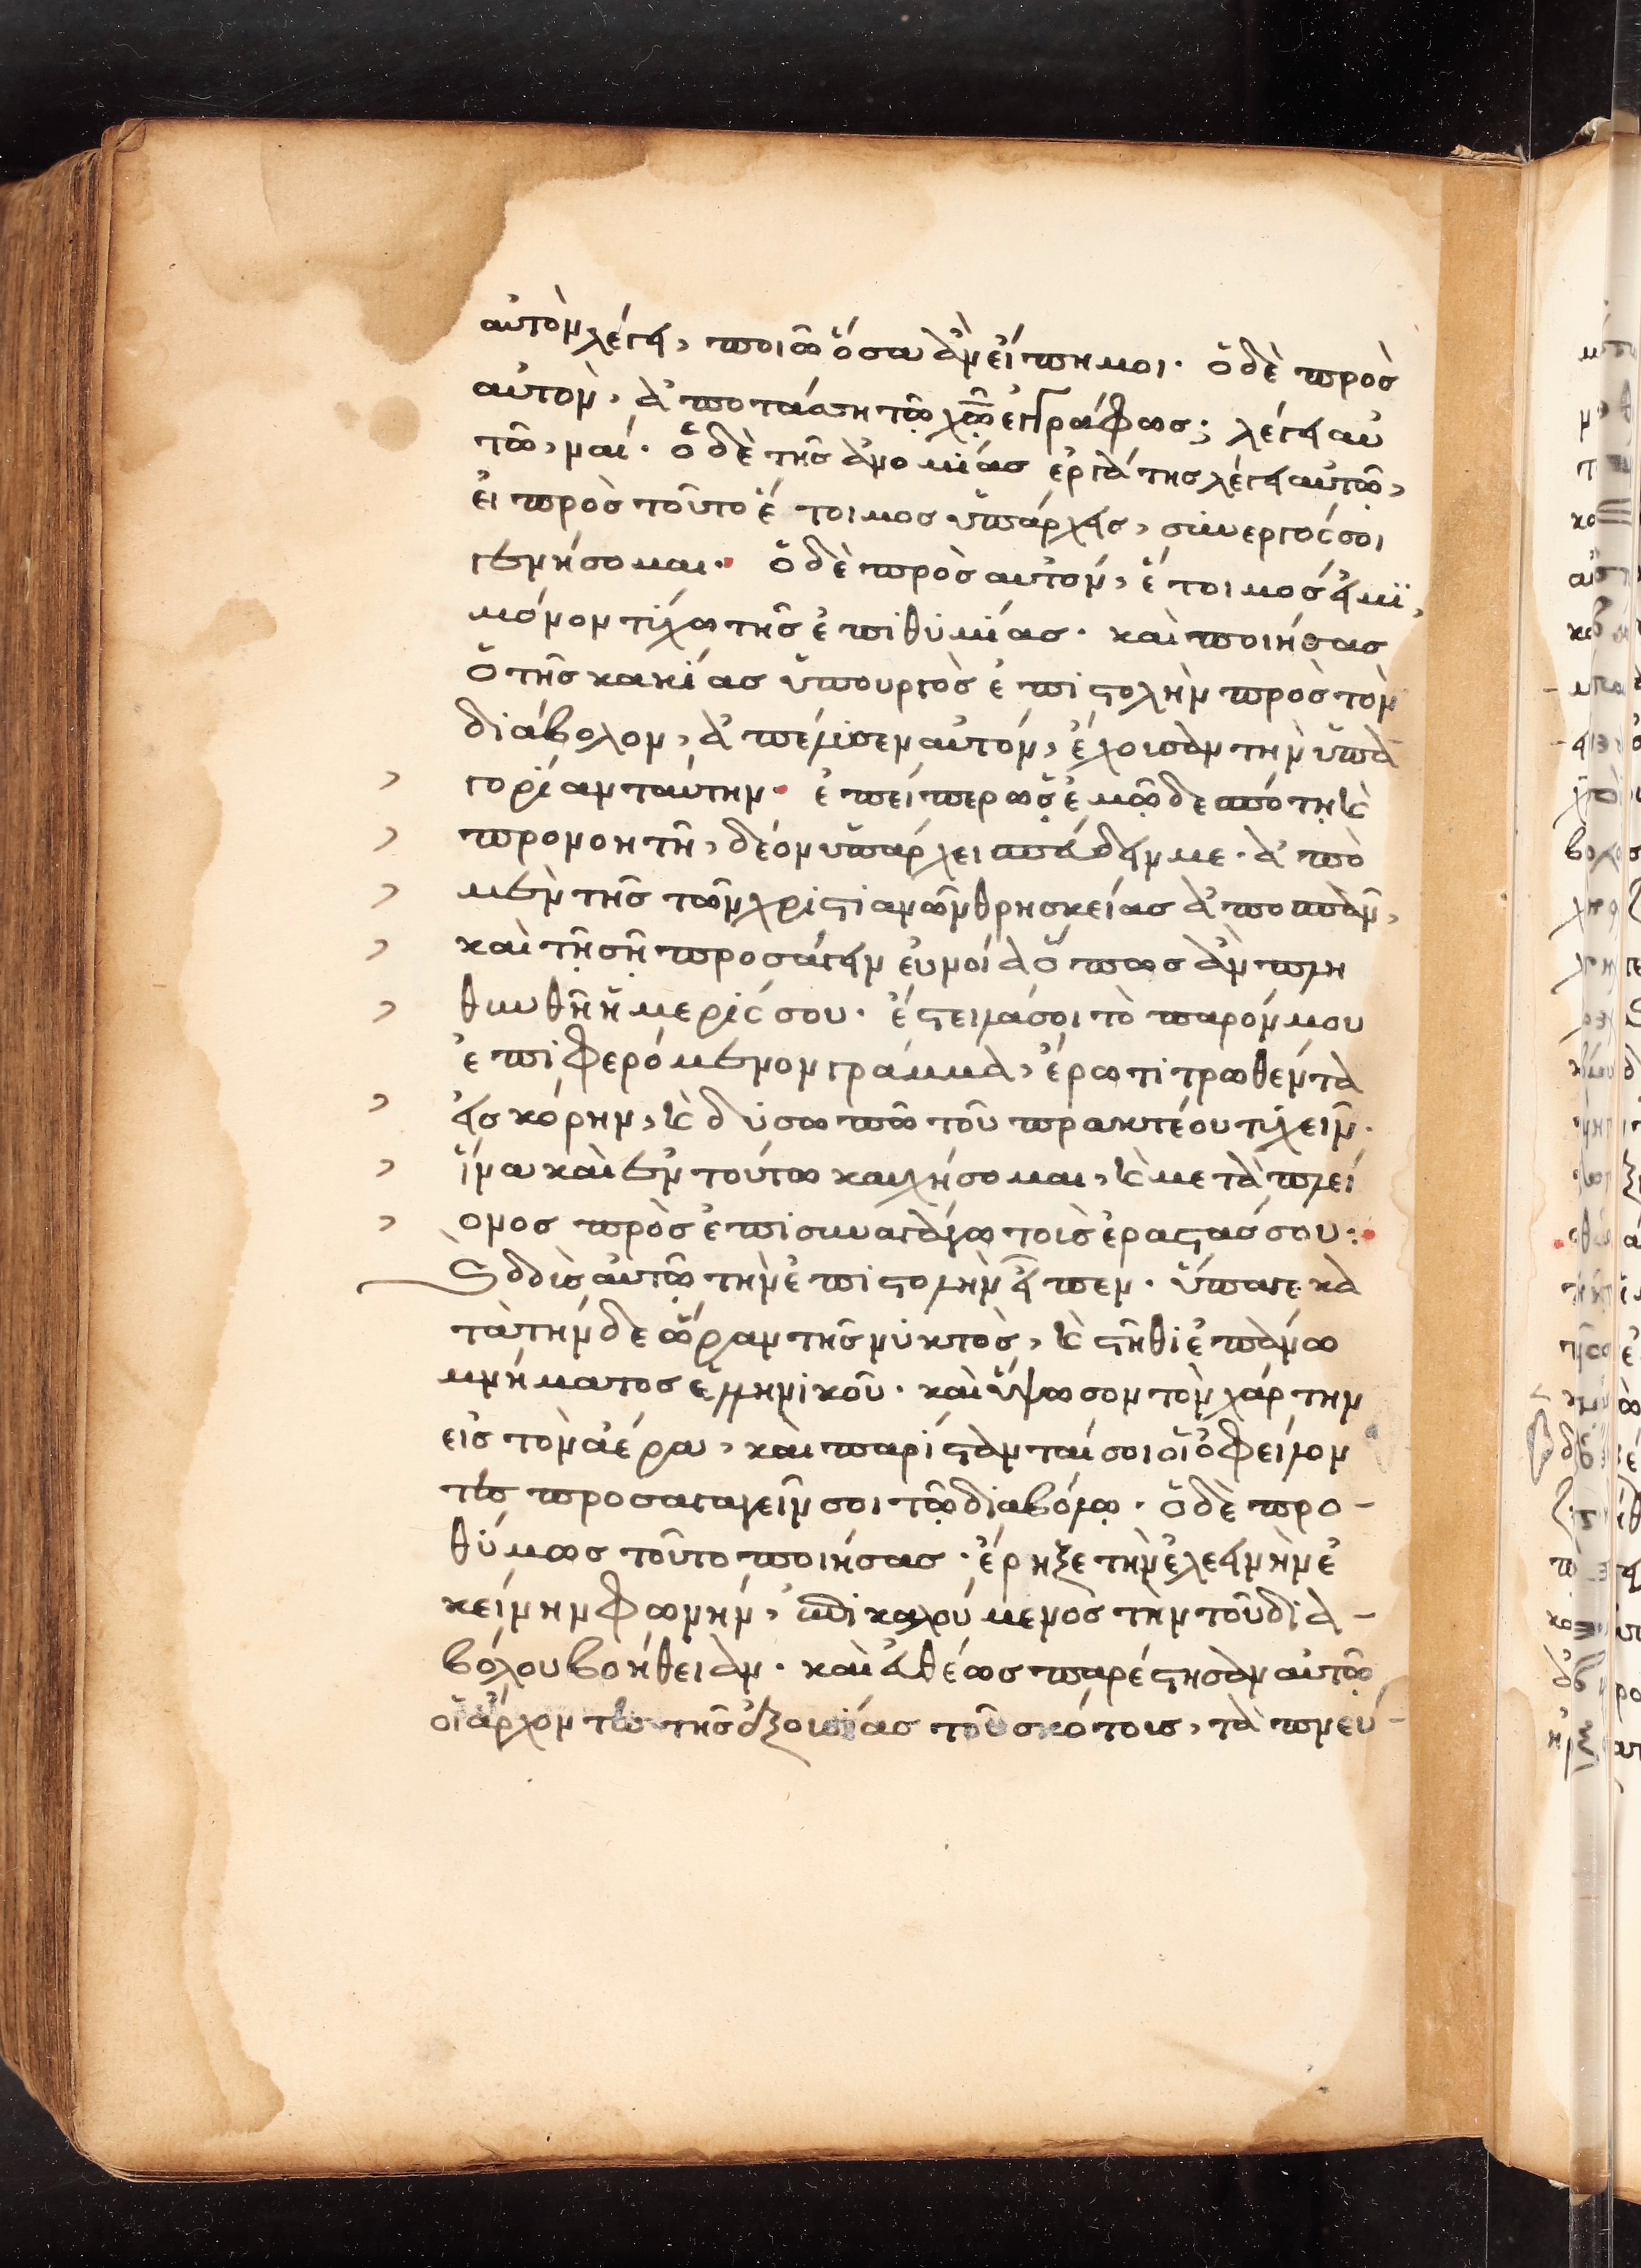 αὐτὸν λέγει, ποιῶ ὅσα ἂν εἴπη μοι. ὁ δὲ πρὸς
αὐτὸν, ἀποτάσση τῶ χῶ ἐγγράφως; λέγει αὐ
τῶ, ναί. ὁ δὲ τῆς ἀνομίας ἐργάτης λέγει αὐτῶ,
εἰ πρὸς τοῦτο ἕτοιμος ὑπάρχεις, συνεργός σοι
γενήσομαι. ὁ δὲ πρὸς αὐτόν, ἕτοιμός εἰμϊ,
μόνον τύχω τῆς ἐπιθυμίας. καὶ ποιήσας
ὁ τῆς κακίας ὑπουργὸς ἐπιστολὴν πρὸς τὸν
διάβολον, ἀπέλυσεν αὐτόν, ἔχουσαν τὴν ὑπα
γορίαν ταύτην. ἐπείπερ ὡς ἐμῶ δεσπότη κ
προνοητῆ, δέον ὑπάρχει σπεύδειν με. ἀπὸ
μὲν τῆς τῶν χριστιανῶν θρησκείας ἀποσπᾶν,
καὶ τῆ σῆ προσάγειν εὐνοία ὅπως ἂν πλη
θυνθῆ ἡ μερίς σου. ἔστειλά σοι τὸ παρόν μου
ἐπιφερόμενον γράμμα, ἔρωτι τρωθέντα
εἰς κόρην, κ δυσωπῶ τοῦ πρακτέου τυχεῖν.
ἵνα καὶ ἐν τούτω καυχήσομαι, κ μετὰ πλεί
ονος προσεπισυνάγω τοὺς ἐραστάς σου:
Καὶ δοὺς αὐτῶ τὴν ἐπιστολὴν εἶπεν. ὕπαγε κα
τὰ τήνδε ὥραν τῆς νυκτὸς, κ στῆθι ἐπάνω
μνήματος ἑλληνικοῦ. καὶ ὕψωσον τὸν χάρτην
εἰς τὸν ἀέρα, καὶ παρίστανταί σοι οἱ ὀφείλον
τες προσαγαγεῖν σοι τῶ διαβόλω. ὁ δὲ προ-
θύμως τοῦτο ποιήσας. ἔρηξε τὴν ἐλεεινὴν ἐ
κείνην φωνήν, ἐπικαλούμενος τὴν τοῦ δια-
βόλου βοήθειαν. καὶ εὐθέως παρέστησαν αὐτῶ
οἱ ἄρχοντες τῆς ἐξουσίας τοῦ σκότους, τὰ πνευ-